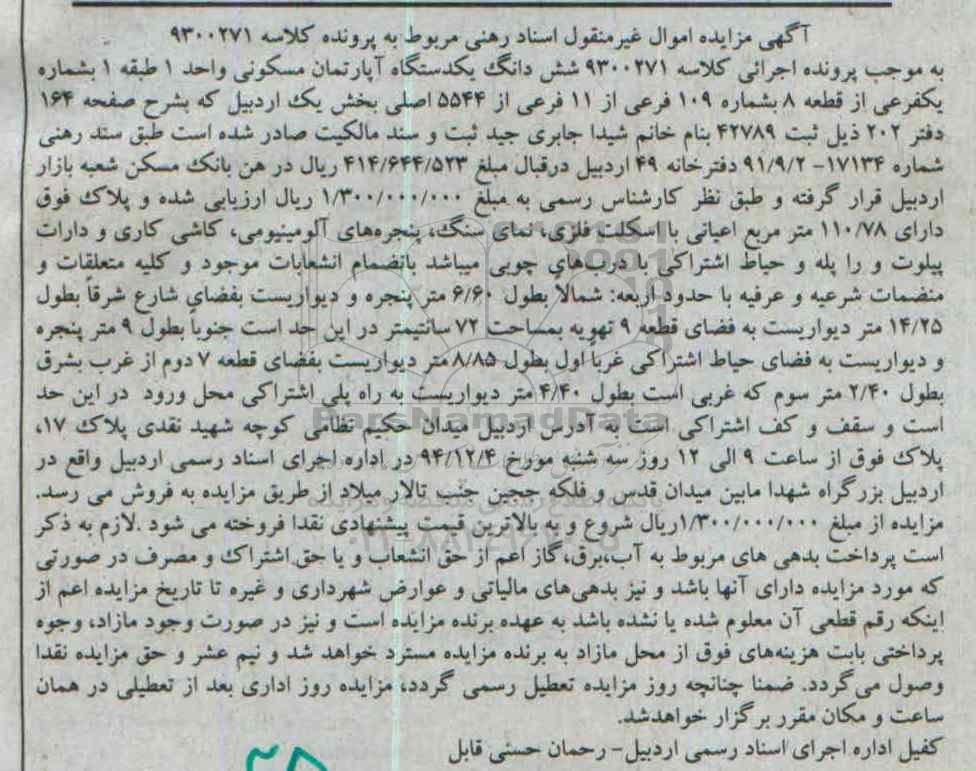 آگهی مزایده اموال غیرمنقول اسناد رهنی مربوط به پرونده کلاسه ۹۳۰۰۲۷۱
به موجب پرونده اجرائی کلاسه ۹۳۰۰۲۷۱ شش دانگ یکدستگاه آپارتمان مسکونی واحد ۱ طبقه ۱ بشماره
یکفرعی از قطعه ۸ بشماره ۱۰۹ فرعی از ۱۱ فرعی از ۵۵۴۴ اصلی بخش یک اردبیل که بشرح صفحه ۱۶۴
دفتر ۲۰۲ ذیل ثبت ۴۲۷۸۹ بنام خانم شیدا جابری جید ثبت و سند مالکیت صادر شده است طبق سند رهنی
شماره ۱۷۱۳۴- ۹۱/۹/۲ دفترخانه ۴۹ اردبیل درقبال مبلغ ۴۱۴/۶۴۴/۵۲۳ ریال در هن بانک مسکن شعبه بازار
اردبیل قرار گرفته و طبق نظر کارشناس رسمی به مبلغ ۱/۳۰۰/۰۰۰/۰۰۰ ریال ارزیابی شده و پلاک فوق
دارای ۱۱۰/۷۸ متر مربع اعیانی با اسکلت فلزی، نمای سنگ، پنجره‌های آلومینیومی، کاشی کاری و دارات
پیلوت و را پله و حیاط اشتراکی با درب‌های چوبی میباشد بانضمام انشعابات موجود و کلیه متعلقات و
منضمات شرعیه و عرفیه با حدود اربعه: شمالاً بطول ۶/۶۰ متر پنجره و دیواریست بفضای شارع شرقاً بطول
۱۴/۲۵ متر دیواریست به فضای قطعه ۹ تهویه بمساحت ۷۲ سانتیمتر در این حد است جنوباً بطول ۹ متر پنجره
و دیواریست به فضای حیاط اشتراکی غرباً اول بطول ۸/۸۵ متر دیواریست بفضای قطعه ۷ دوم از غرب بشرق
بطول ۲/۴۰ متر سوم که غربی است بطول ۴/۴۰ متر دیواریست به راه پلی اشتراکی محل ورود در این حد
است و سقف و کف اشتراکی است به آدرس اردبیل میدان حکیم نظامی کوچه شهید نقدی پلاک ۱۷،
پلاک فوق از ساعت ۹ الی ۱۲ روز سه شنبه مورخ ۹۴/۱۲/۴ در اداره اجرای اسناد رسمی اردبیل واقع در
اردبیل بزرگراه شهدا مابین میدان قدس و فلکه ججین جنب تالار میلاد از طریق مزایده به فروش می رسد.
مزایده از مبلغ ۱/۳۰۰/۰۰۰/۰۰۰ریال شروع و به بالاترین قیمت پیشنهادی نقدا فروخته می شود .لازم به ذکر
است پرداخت بدهی های مربوط به آب،برق،گاز اعم از حق انشعاب و یا حق اشتراک و مصرف در صورتی
که مورد مزایده دارای آنها باشد و نیز بدهی‌های مالیاتی و عوارض شهرداری و غیره تا تاریخ مزایده اعم از
اینکه رقم قطعی آن معلوم شده یا نشده باشد به عهده برنده مزایده است و نیز در صورت وجود مازاد، وجوه
پرداختی بابت هزینه‌های فوق از محل مازاد به برنده مزایده مسترد خواهد شد و نیم عشر و حق مزایده نقدا
وصول می گردد. ضمنا چنانچه روز مزایده تعطیل رسمی گردد، مزایده روز اداری بعد از تعطیلی در همان
ساعت و مکان مقرر برگزار خواهدشد.
کفیل اداره اجرای اسناد رسمی اردبیل- رحمان حسنی قابل
ParsNamadData